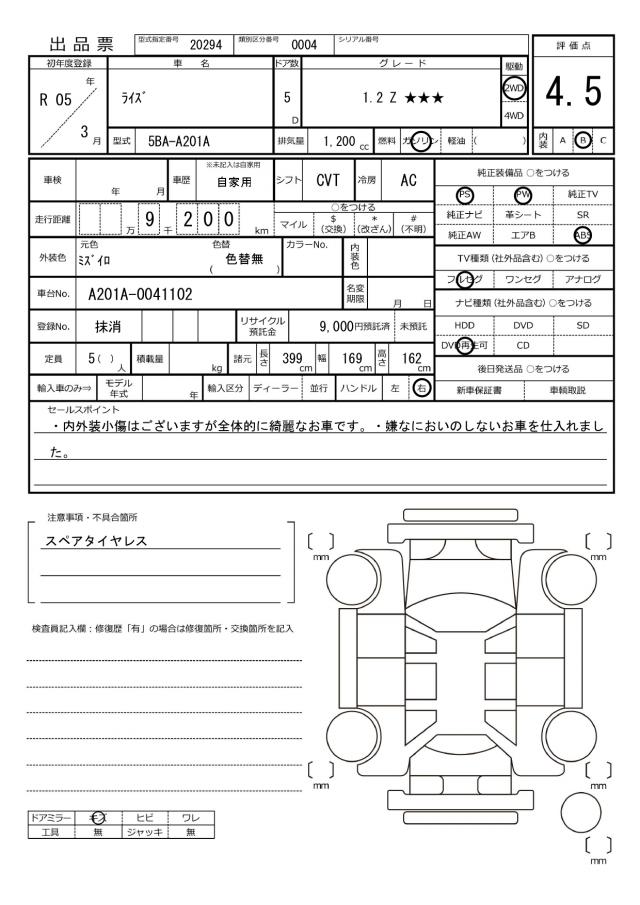 出品票 型式指定番号 20294 類別区分番号 0004 シリアル番号
評価点
初年度登録 車名 ドア数 グレード 駆動
R 05 年 3 月 ﾗｲｽﾞ 5 D 1.2 Z ★★★ 2WD 4WD 4.5
型式 5BA-A201A 排気量 1,200 cc 燃料 ガソリン 軽油 ( ) 内装 A B C
車検 年 月 車歴 ※未記入は自家用 自家用 シフト CVT 冷房 AC
走行距離 万 9 千 200 km ○をつける
マイル $ (交換) * (改ざん) # (不明)
外装色 元色 ﾐｽﾞｲﾛ 色替 ( 色替無 ) カラーNo. 内装色
車台No. A201A-0041102 名変期限 月 日
登録No. 抹消 リサイクル預託金 9,000円預託済 未預託
定員 5( ) 人 積載量 kg 諸元 長さ 399 cm 幅 169 cm 高さ 162 cm
輸入車のみ⇒ モデル年式 年 輸入区分 ディーラー 並行 ハンドル 左 右
純正装備品 ○をつける
PS PW 純正TV
純正ナビ 革シート SR
純正AW エアB ABS
TV種類 (社外品含む) ○をつける
フルセグ ワンセグ アナログ
ナビ種類 (社外品含む) ○をつける
HDD DVD SD
DVD再生可 CD
後日発送品 ○をつける
新車保証書 車輌取説
セールスポイント
・内外装小傷はございますが全体的に綺麗なお車です。・嫌なにおいのしないお車を仕入れまし
た。
注意事項・不具合箇所
スペアタイヤレス
検査員記入欄：修復歴「有」の場合は修復箇所・交換箇所を記入
〔 〕 mm 〔 〕 mm
〔 〕 mm 〔 〕 mm
〔 〕 mm
ドアミラー キズ ヒビ ワレ
工具 無 ジャッキ 無